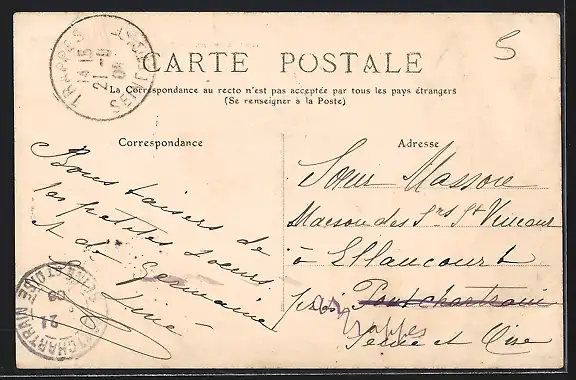 TRAPPES
14 15
21 - 9
SEINE
5
CARTE POSTALE
La Correspondance au recto n'est pas acceptée par tous les pays étrangers
(Se renseigner à la Poste)
Correspondance
Bons baisers de
les petites soeurs
et de Germaine
Line
Adresse
Soeur Massou
Maison des Srs St Vincent
à Ellancourt
près Pontchartrain
Trappes
Seine et Oise
21